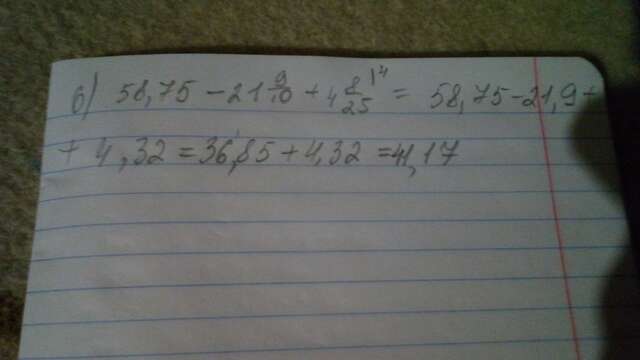 б) 58,75 - 21 9/10 + 4 8/25 ^14 = 58,75 - 21,9 +
+ 4,32 = 36,85 + 4,32 = 41,17